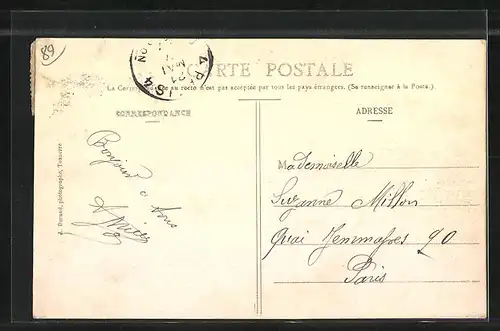 89
CARTE POSTALE
La Correspondance au recto n'est pas acceptée par tous les pays étrangers. (Se renseigner à la Poste.)
CORRESPONDANCE
ADRESSE
Bonjour
à tous
Mademoiselle
Suzanne Millon
Quai Jemmapes 90
Paris
F. Durand, photographe, Tonnerre